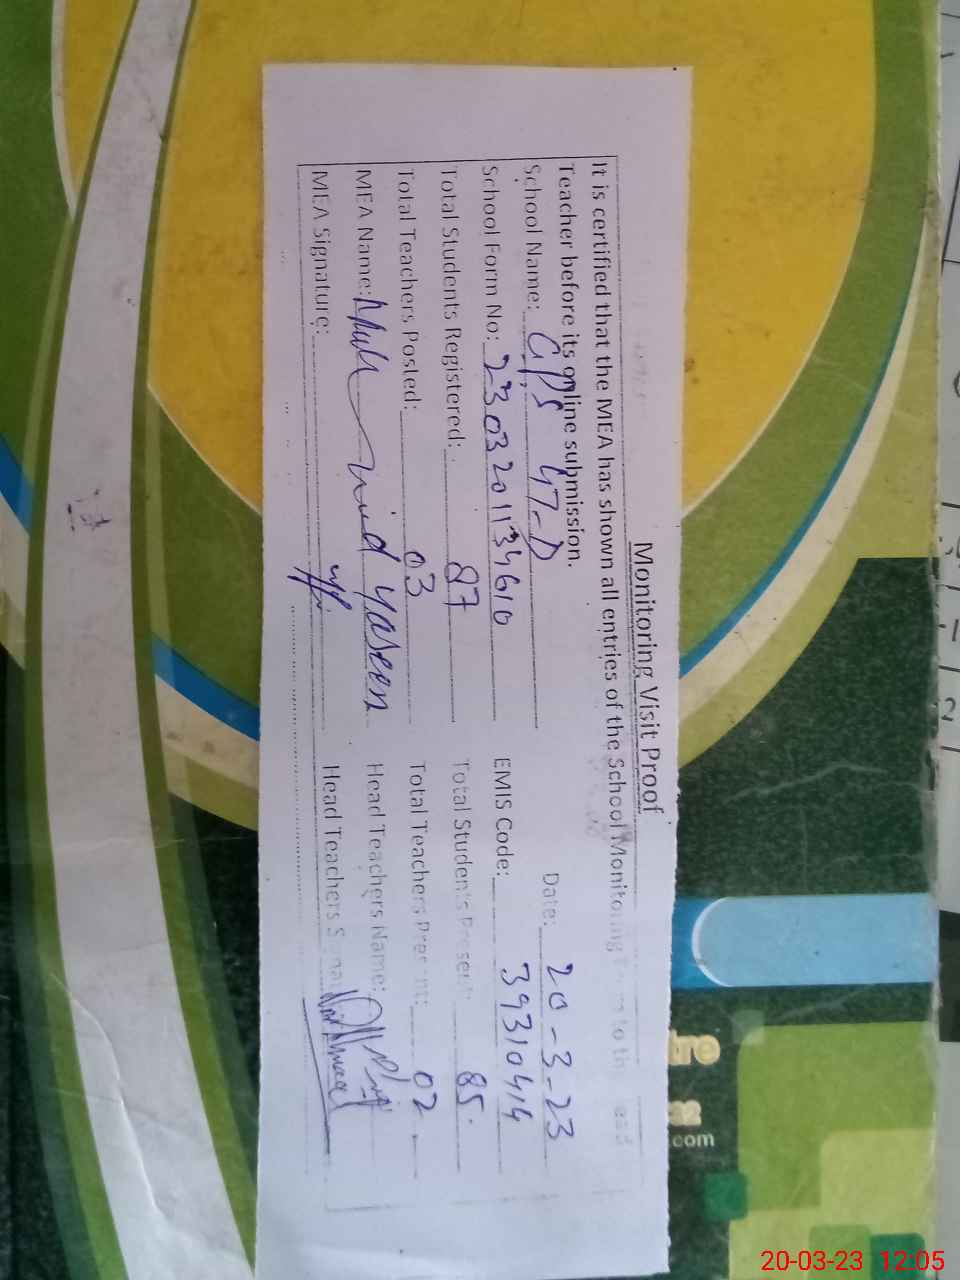 Monitoring Visit Proof
It is certified that the MEA has shown all entries of the School Monitoring Form to the Head
Teacher before its online submission.
Date: 20-3-23
School Name: GPS 47-D
School Form No: 2303201134610 EMIS Code: 39310414
Total Students Registered: 87 Total Students Present: 85
Total Teachers Posted: 03 Total Teachers Present: 02
MEA Name: Yaseen Head Teachers Name:
MEA Signature: Head Teachers Signature:
tre
32
com
20-03-23 12:05